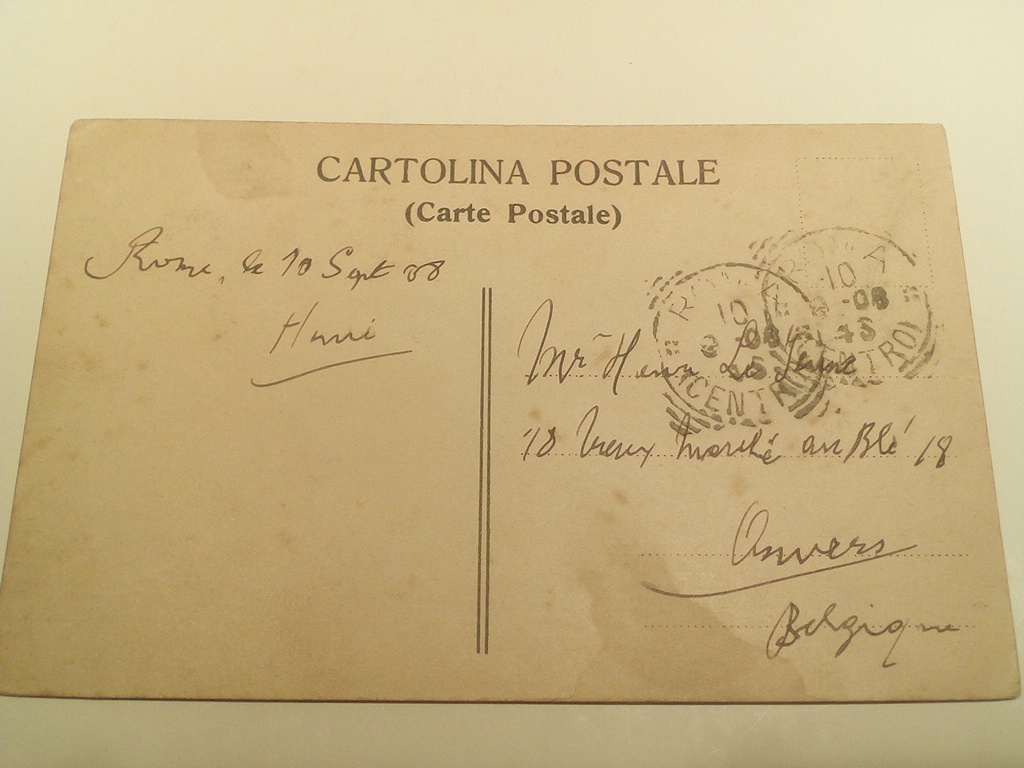 CARTOLINA POSTALE
(Carte Postale)
Rome, le 10 Sept 08
Henri
ROMA
10
9 -08
CENTRO
ROMA
10
9 -08
CENTRO
Mr Henri Le Jeune
18 Vieux Marché au Blé 18
Anvers
Belgique